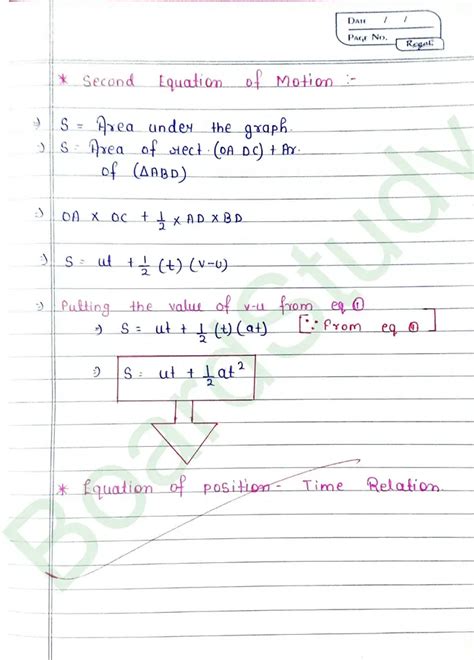 DATE / /
PAGE NO.
Regal
* Second Equation of Motion :-
⇒) S = Area under the graph.
⇒) S = Area of rect. (OADC) + Ar.
of (ΔABD)
⇒) OA × OC + 1/2 × AD × BD
⇒) S = ut + 1/2 (t) (v-u)
⇒) Putting the value of v-u from eq ①
⇒) S = ut + 1/2 (t) (at) [∵ From eq ①]
⇒) S = ut + 1/2 at²
* Equation of position - Time Relation.
BoardStudy